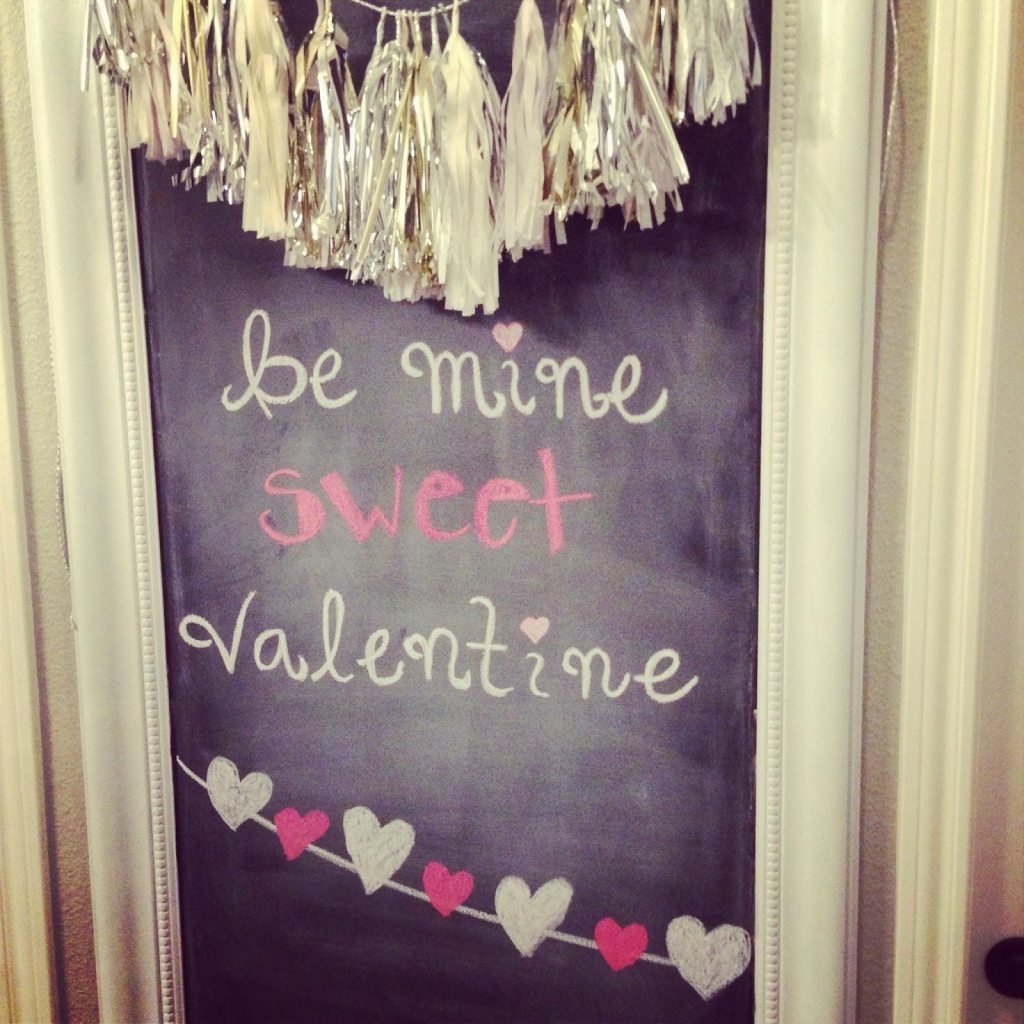 be mine
sweet
valentine